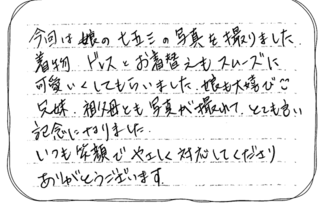 今回は娘の七五三の写真を撮りました.
着物、ドレスとお着替えもスムーズに
可愛いくしてもらいました. 娘も大喜び☺
兄妹、祖父母とも写真が撮れて、とても良い
記念になりました.
いつも笑顔でやさしく対応してくださり
ありがとうございます.